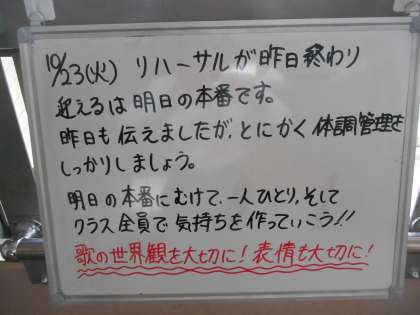 10/23(火) リハーサルが昨日終わり
迎えるは明日の本番です。
昨日も伝えましたが、とにかく体調管理を
しっかりしましょう。
明日の本番にむけて、一人ひとり、そして
クラス全員で気持ちを作っていこう!!
歌の世界観を大切に!表情も大切に!